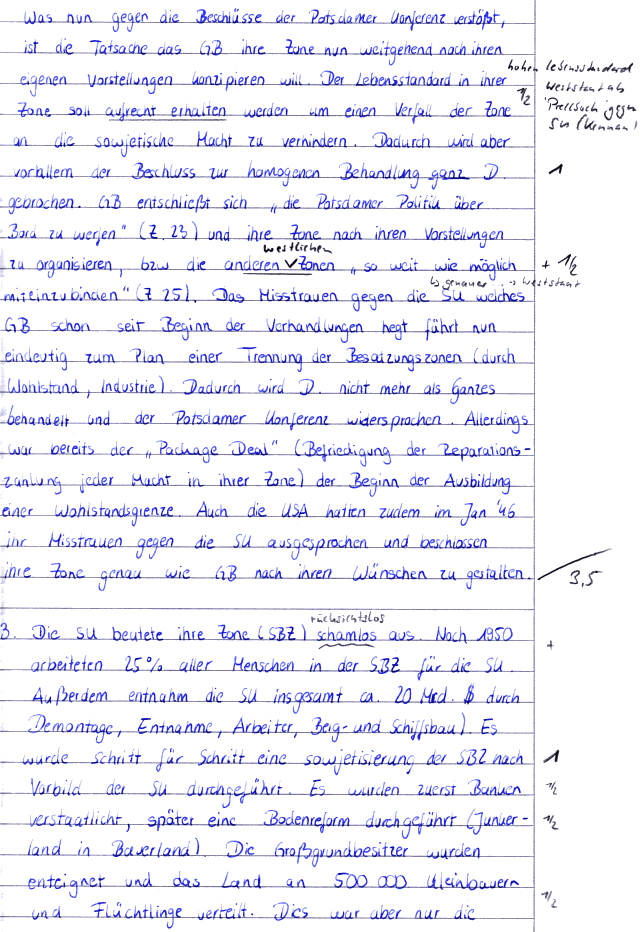 Was nun gegen die Beschlüsse der Potsdamer Konferenz verstößt,
ist die Tatsache das GB ihre Zone nun weitgehend nach ihren
eigenen Vorstellungen konzipieren will. Der Lebensstandard in ihrer
hohen Lebensstandard
1/2 Weststaat als
Zone soll aufrecht erhalten werden um einen Verfall der Zone
"Prellbock" gegen
SU (Kennan)
an die sowjetische Macht zu verhindern. Dadurch wird aber
vorallem der Beschluss zur homogenen Behandlung ganz D. 1
gebrochen. GB entschließt sich „die Potsdamer Politik über
Bord zu werfen" (Z. 23) und ihre Zone nach ihren Vorstellungen
westlichen
zu organisieren, bzw die anderen Zonen „so weit wie möglich + 1/2
↳ genauer → Weststaat
miteinzubinden" (Z 25). Das Misstrauen gegen die SU welches
GB schon seit Beginn der Verhandlungen hegt führt nun
eindeutig zum Plan einer Trennung der Besatzungszonen (durch
Wohlstand, Industrie). Dadurch wird D. nicht mehr als Ganzes
behandelt und der Potsdamer Konferenz widersprochen. Allerdings
war bereits der „Package Deal" (Befriedigung der Reparations-
zahlung jeder Macht in ihrer Zone) der Beginn der Ausbildung
einer Wohlstandsgrenze. Auch die USA hatten zudem im Jan '46
ihr Misstrauen gegen die SU ausgesprochen und beschlossen
ihre Zone genau wie GB nach ihren Wünschen zu gestalten. 3,5
rücksichtslos
3. Die SU beutete ihre Zone (SBZ) schamlos aus. Noch 1950 +
arbeiteten 25% aller Menschen in der SBZ für die SU.
Außerdem entnahm die SU insgesamt ca. 20 Mrd. $ durch
Demontage, Entnahme, Arbeiter, Berg- und Schiffsbau). Es
wurde schritt für Schritt eine sowjetisierung der SBZ nach 1
Vorbild der SU durchgeführt. Es wurden zuerst Banken 1/2
verstaatlicht, später eine Bodenreform durchgeführt (Junker- 1/2
land in Bauerland). Die Großgrundbesitzer wurden
enteignet und das Land an 500 000 Kleinbauern 1/2
und Flüchtlinge verteilt. Dies war aber nur die